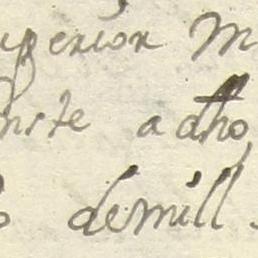 uperior M
nste a dho
o demill